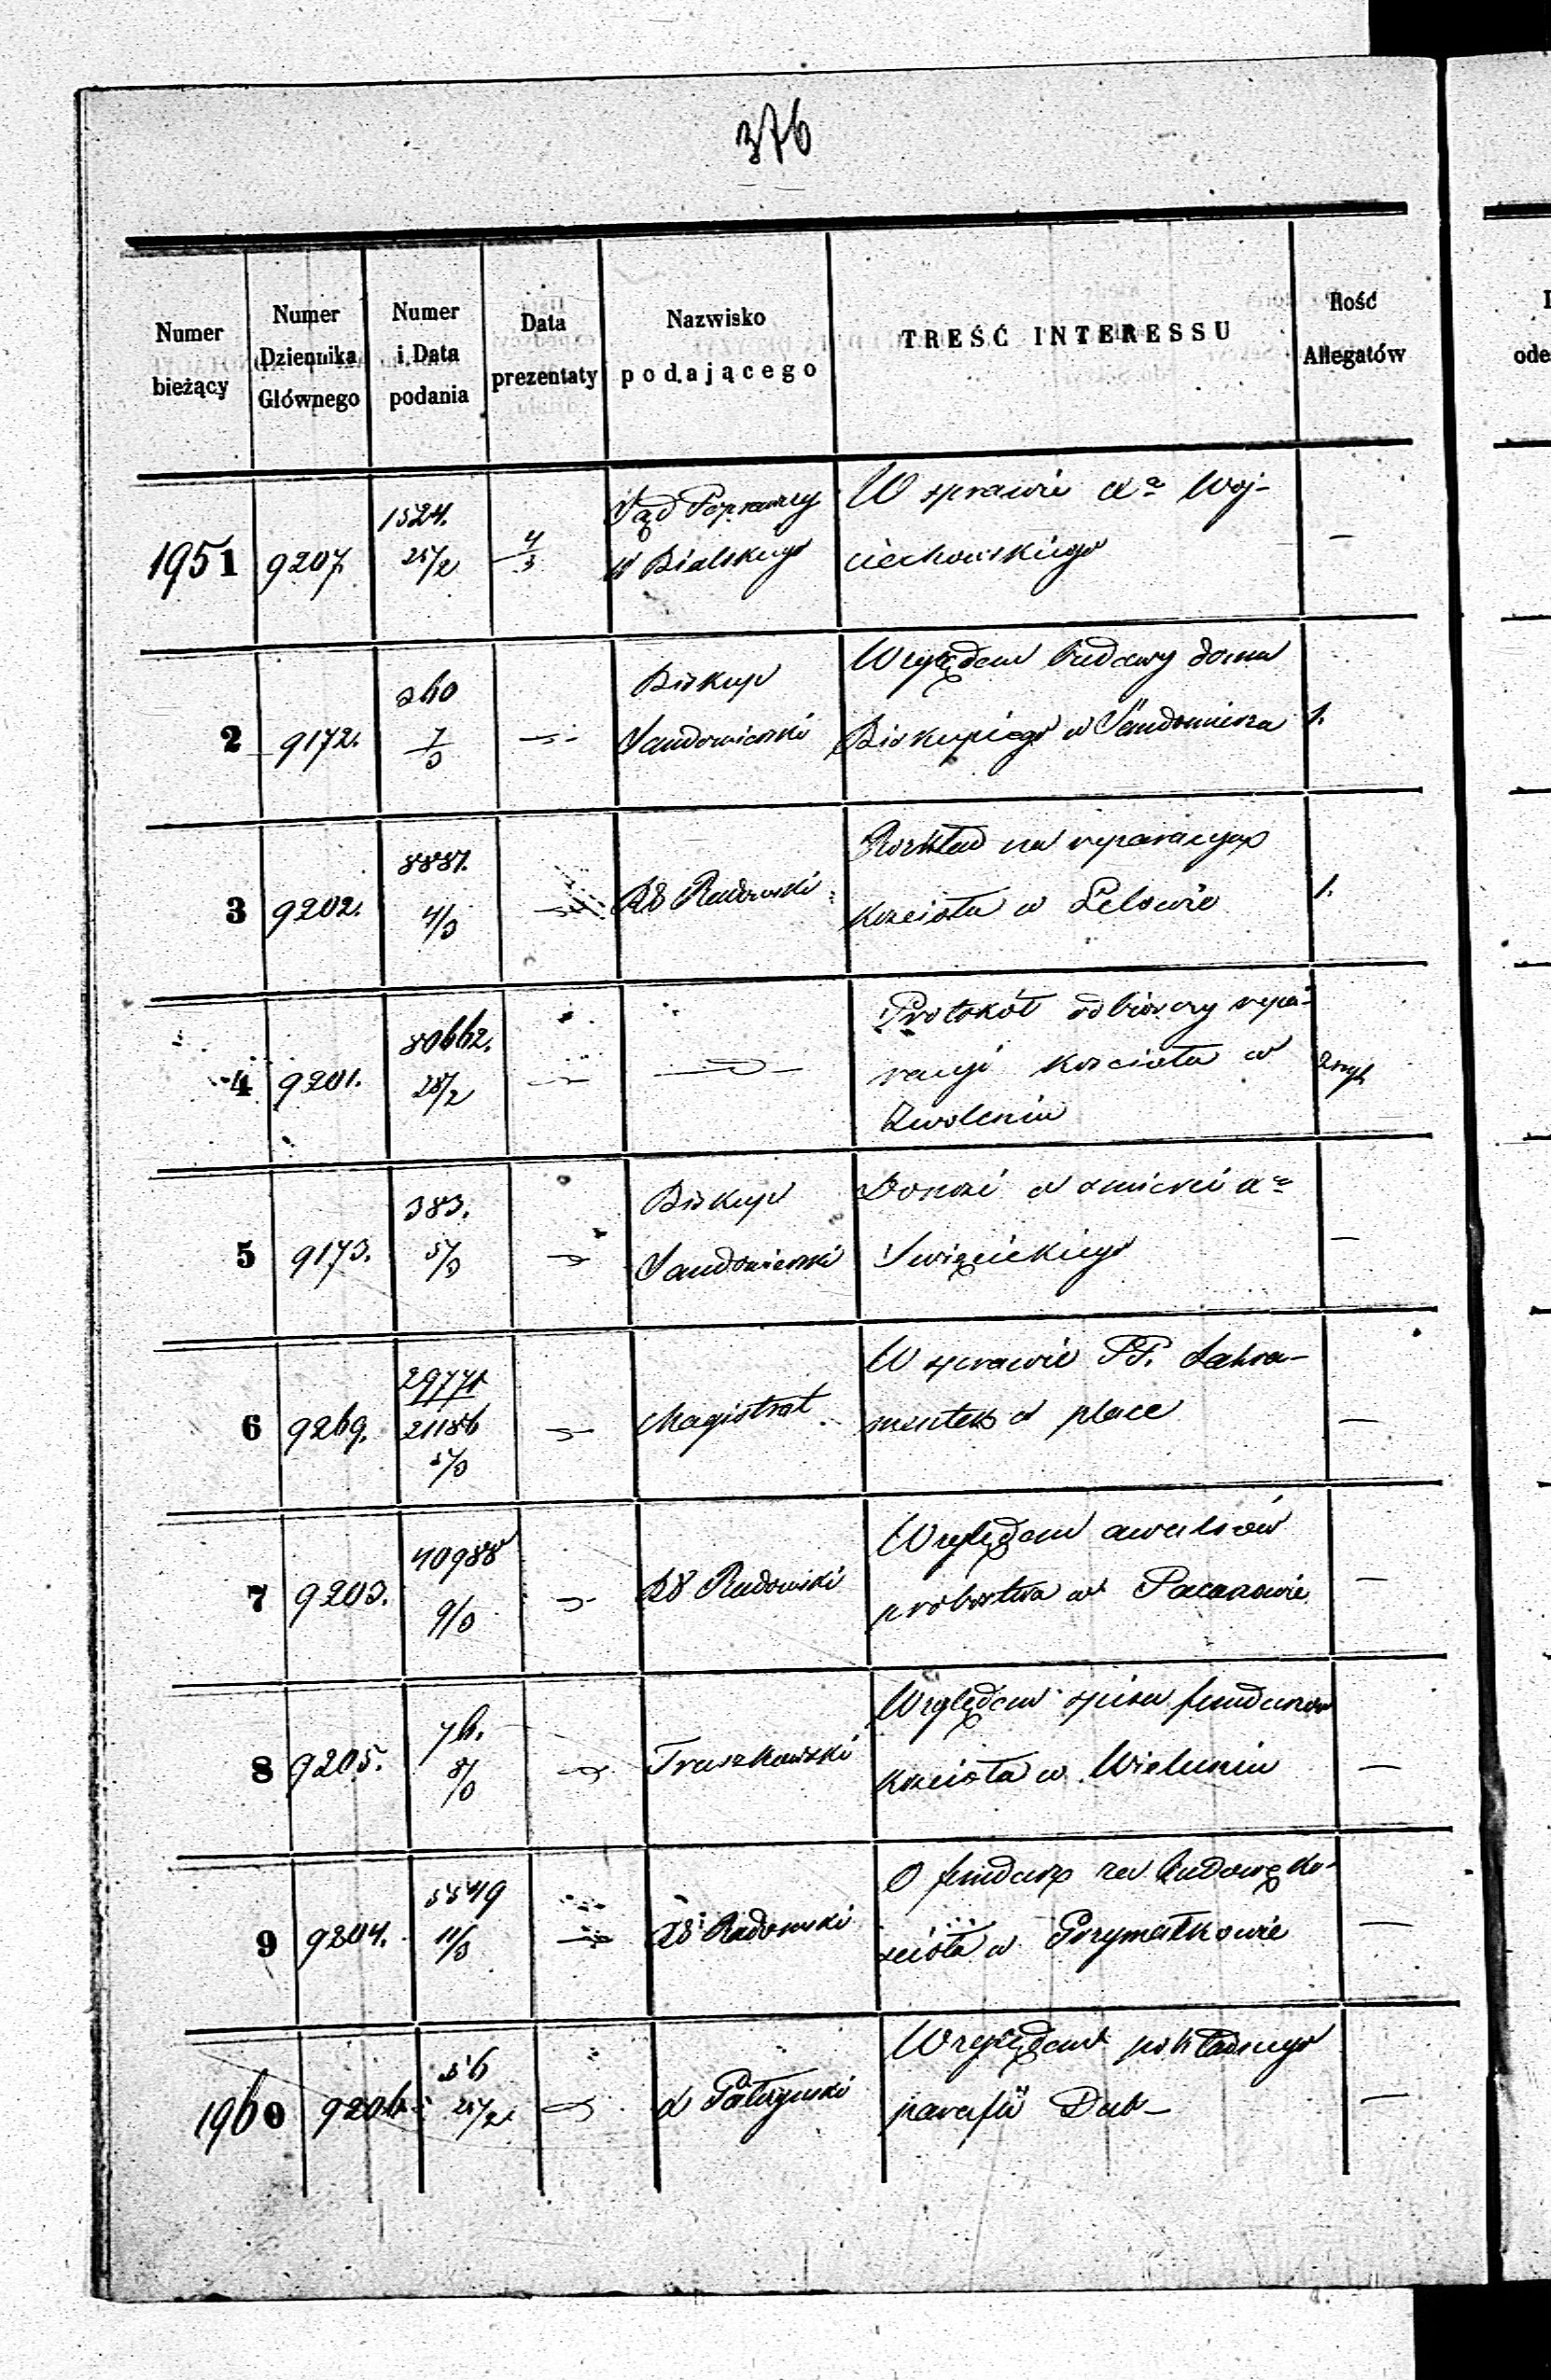 376
Numer bieżący | Numer Dziennika Głównego | Numer i Data podania | Data prezentaty | Nazwisko podającego | TREŚĆ INTERESSU | Ilość Allegatów
1951 | 9207. | 1524. 25/2 | 4/3 | Sąd Poprawczy W Bialskiego | W sprawie Xa Woj-
ciechowskiego | —
2 | 9172. | 260 7/3 | — | Biskup Sandomierski | Względem budowy domu
Biskupiego w Sandomierzu | 1.
3 | 9202. | 8887. 4/3 | — | RG Radomski | Rozkład na reparacyą
kościoła w Lelowie | 1.
4 | 9201. | 80662. 28/2 | — | — | Protokół odbiorczy repa-
racyi kościoła w
Zwoleniu
5 | 9173. | 383. 5/3 | — | Biskup Sandomierski | Donosi o śmierci Xa
Święcickiego | —
6 | 9269. | 29771 21186 5/3 | — | Magistrat | W sprawie PP. Sakra-
mentek o place | —
7 | 9203. | 40988 9/3 | — | RG Radomski | Względem awulsów
probostwa w Pacanowie | —
8 | 9205. | 76. 8/3 | — | Truszkowski | Względem spisu funduszów
kościoła w Wieluniu | —
9 | 9204. | 5549 11/3 | — | RG Radomski | O fundusz na budowę ko-
ścioła w | —
1960 | 9206. | 56 25/2. | — | X | Względem pokładnego
parafii Dub— | —